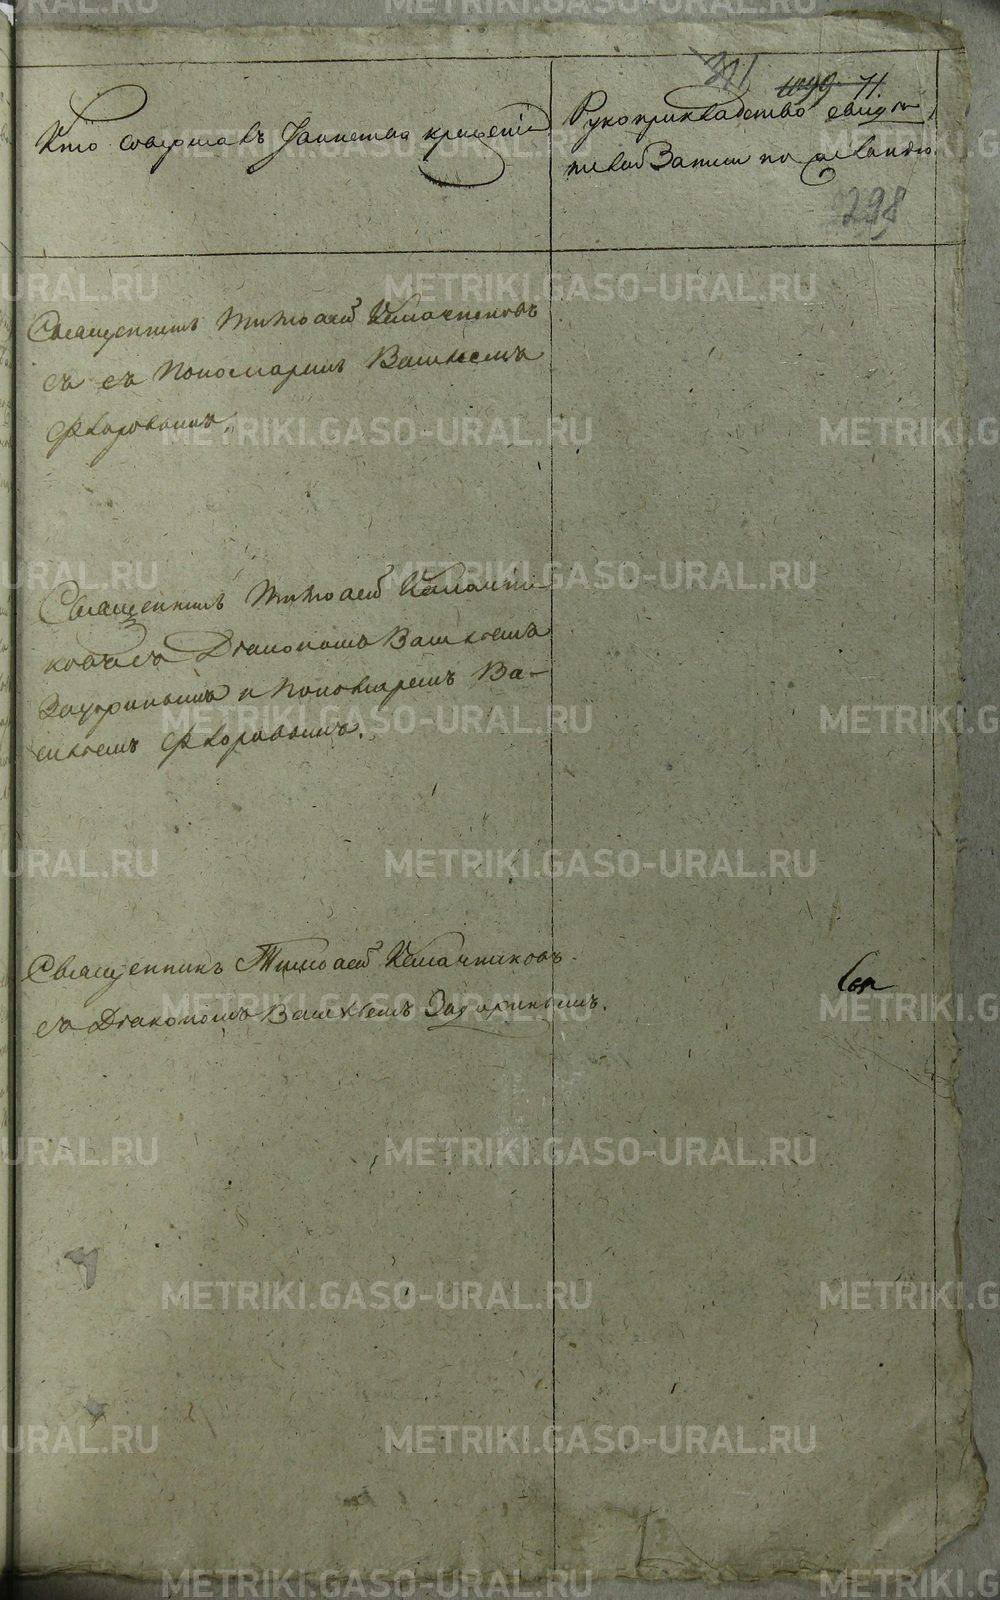 311
1099 71.
Кто совершавъ Таинство крещенія
Рукоприкладство свидѣ
телей Записи по желанію.
298
Священникъ Тимоѳей Калачниковъ
съ съ Пономаремъ Васильемъ
Флоровымъ.
Священникъ Тимоѳей Калачни-
ковъ съ Діакономъ Васильемъ
Задоринымъ и Пономаремъ Ва-
сильемъ Флоровымъ.
Священникъ Тимоѳей Калачниковъ
съ Діакономъ Васильемъ Задоринымъ.
METRIKI.GASO-URAL.RU